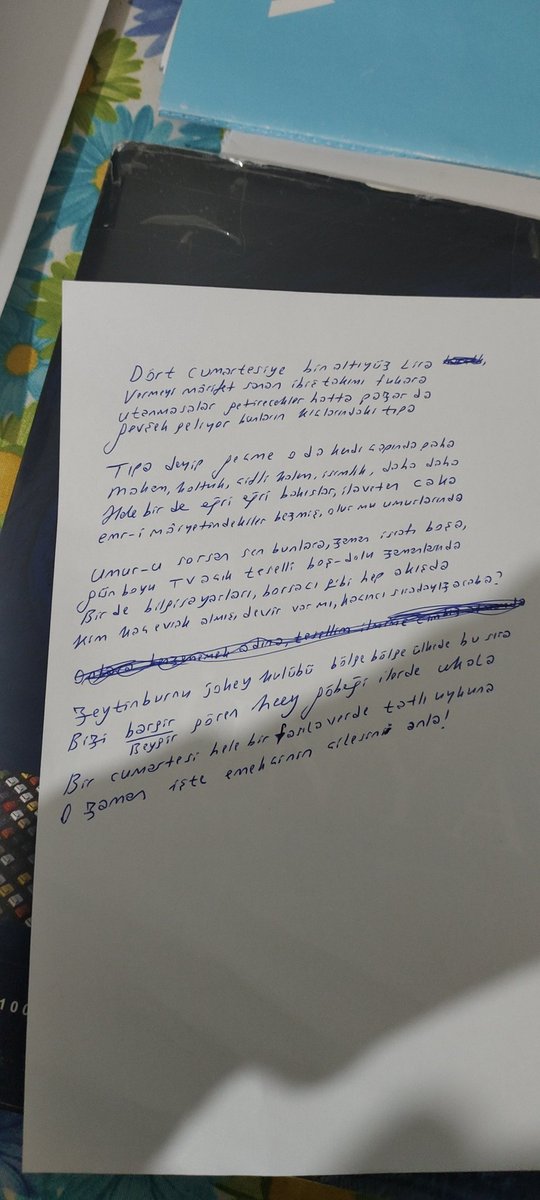 Dört cumartesiye bin altıyüz Lira
Vermeyi mârifet sanan ibiş takımı fukara
utanmasalar getirecekler hatta pazar da
gevşek geliyor bunların kıçlarındaki tıpa
Tıpa deyip geçme o da kendi çapında paha
makam, koltuk, cidli kalem, isimlik, daha daha
Hele bir de eğri eğri bakışlar, ilaveten caka
emr-i mâiyetindekiler bezmiş, olur mu umurlarında
Umur-u sorsan sen bunlara, zaman israfı boşa,
gün boyu TV açık teselli boş-dolu zamanlarda
Bir de bilgisayarları, borsacı gibi hep akışda
Kim kaç evrak almış, devir var mı, kaçıncı sıradayız acaba?
Zeytinburnu jokey kulübü bölge bölge ülkede bu sıra
Bizi bargir
Beygir gören heey göbeği ilerde ukala
Bir cumartesi hele bir fasıla verde tatlı uykuna
O zaman işte emekçinin çilesini anla!
100